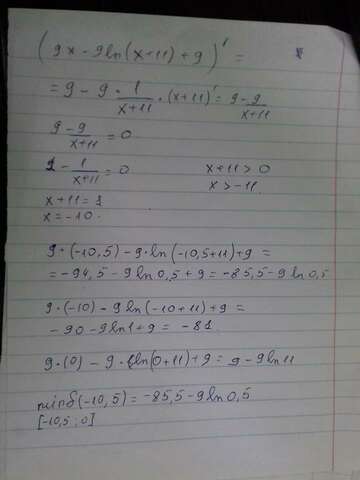 (9x - 9ln(x+11) + 9)' =
= 9 - 9 · 1/(x+11) · (x+11)' = 9 - 9/(x+11)
9 - 9/(x+11) = 0
1 - 1/(x+11) = 0 x+11 > 0
x+11 = 1 x > -11
x = -10.
9·(-10,5) - 9·ln(-10,5+11)+9 =
= -94,5 - 9 ln 0,5 + 9 = -85,5 - 9 ln 0,5
9·(-10) - 9 ln(-10+11)+9 =
-90 - 9 ln 1 + 9 = -81
9·(0) - 9·ln(0+11)+9 = 9 - 9 ln 11
min f(-10,5) = -85,5 - 9 ln 0,5
[-10,5 ; 0]